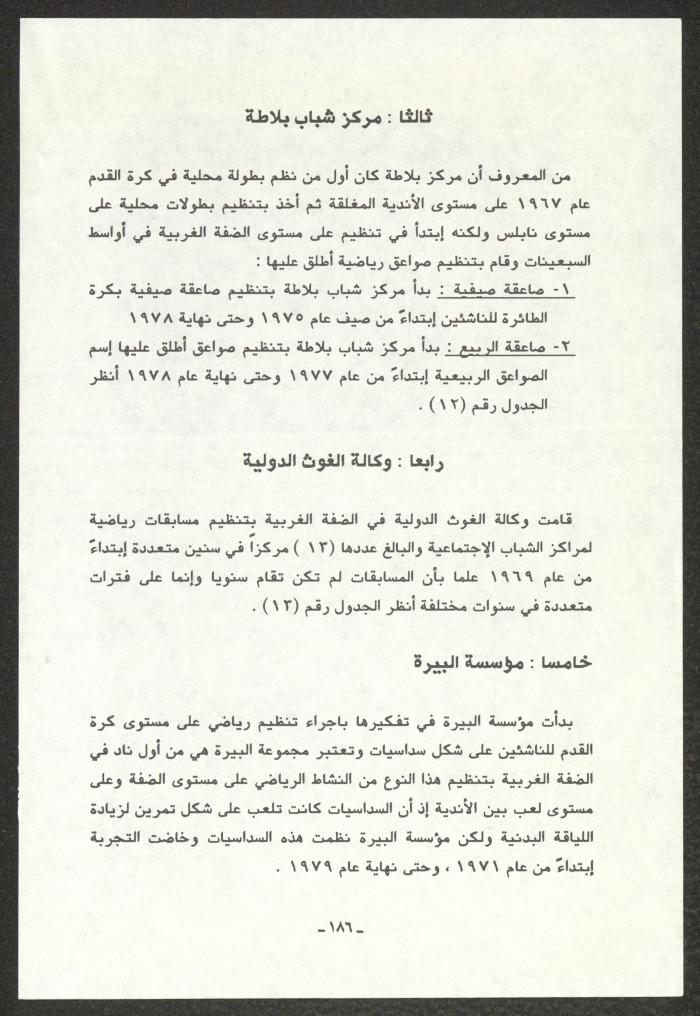 ثالثا : مركز شباب بلاطة
من المعروف أن مركز بلاطة كان أول من نظم بطولة محلية في كرة القدم
عام ١٩٦٧ على مستوى الأندية المغلقة ثم أخذ بتنظيم بطولات محلية على
مستوى نابلس ولكنه إبتدأ في تنظيم على مستوى الضفة الغربية في أواسط
السبعينات وقام بتنظيم صواعق رياضية أطلق عليها :
١- صاعقة صيفية : بدأ مركز شباب بلاطة بتنظيم صاعقة صيفية بكرة
الطائرة للناشئين إبتداءً من صيف عام ١٩٧٥ وحتى نهاية ١٩٧٨
٢- صاعقة الربيع : بدأ مركز شباب بلاطة بتنظيم صواعق أطلق عليها إسم
الصواعق الربيعية إبتداءً من عام ١٩٧٧ وحتى نهاية عام ١٩٧٨ أنظر
الجدول رقم (١٢) .
رابعا : وكالة الغوث الدولية
قامت وكالة الغوث الدولية في الضفة الغربية بتنظيم مسابقات رياضية
لمراكز الشباب الإجتماعية والبالغ عددها (١٣ ) مركزاً في سنين متعددة إبتداءً
من عام ١٩٦٩ علما بأن المسابقات لم تكن تقام سنويا وإنما على فترات
متعددة في سنوات مختلفة أنظر الجدول رقم (١٣) .
خامسا : مؤسسة البيرة
بدأت مؤسسة البيرة في تفكيرها باجراء تنظيم رياضي على مستوى كرة
القدم للناشئين على شكل سداسيات وتعتبر مجموعة البيرة هي من أول ناد في
الضفة الغربية بتنظيم هذا النوع من النشاط الرياضي على مستوى الضفة وعلى
مستوى لعب بين الأندية إذ أن السداسيات كانت تلعب على شكل تمرين لزيادة
اللياقة البدنية ولكن مؤسسة البيرة نظمت هذه السداسيات وخاضت التجربة
إبتداءً من عام ١٩٧١ ، وحتى نهاية عام ١٩٧٩ .
ـ ١٨٦ ـ